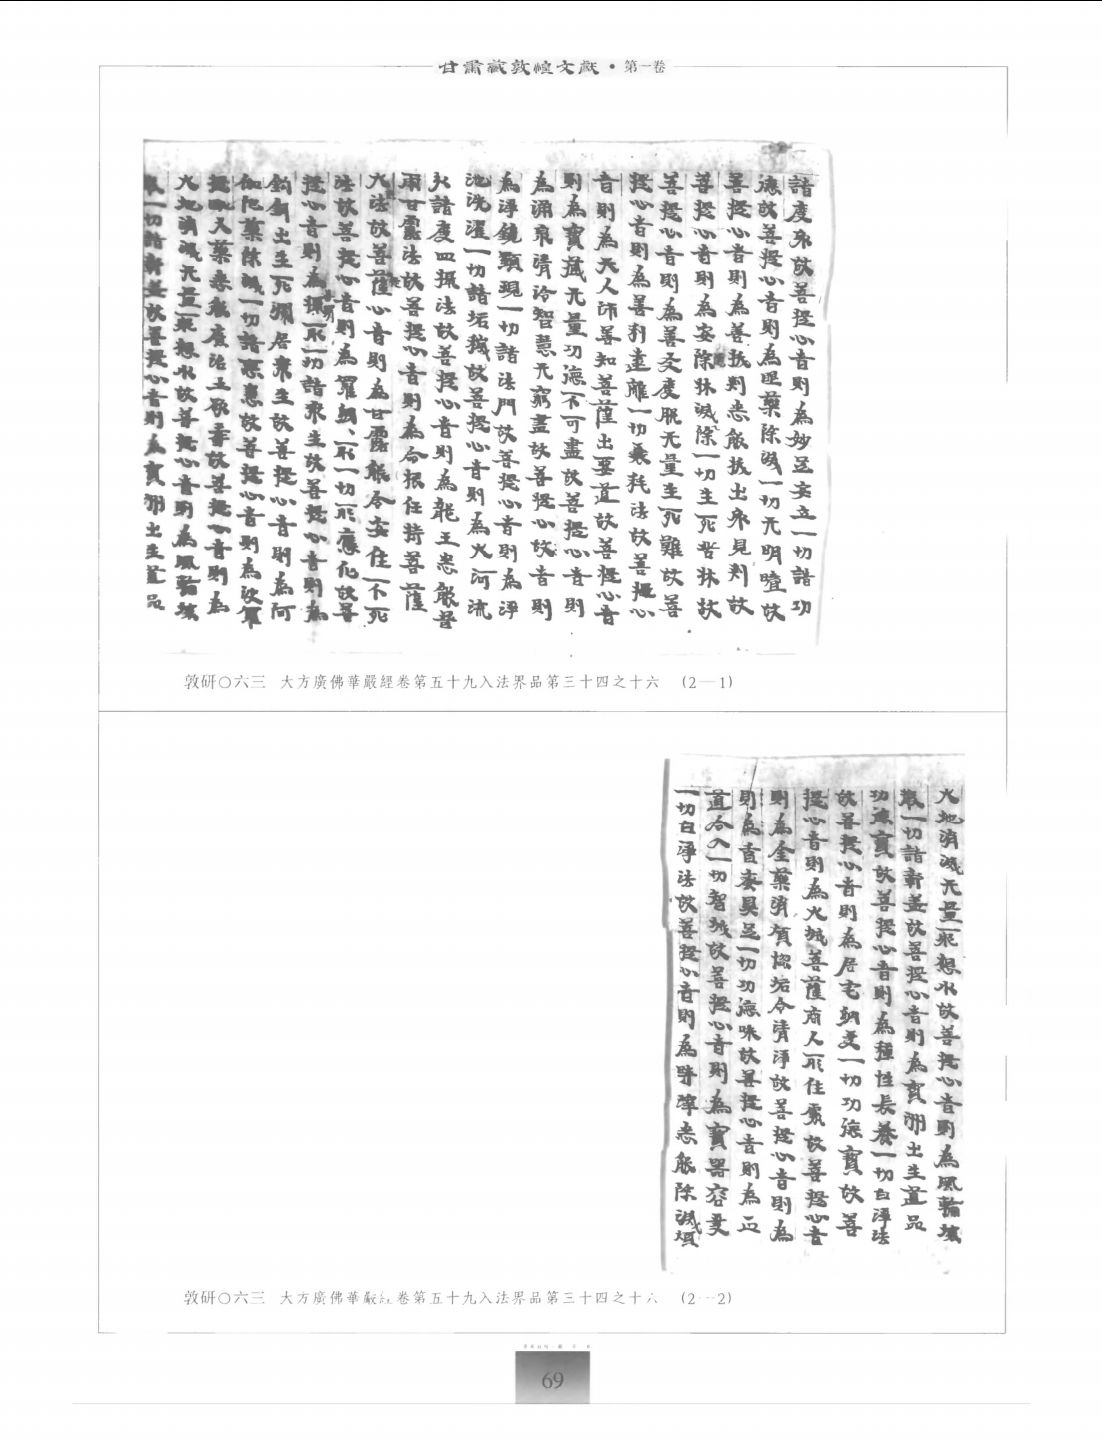 甘肅藏敦煌文獻・第一卷
諸度岸故菩提心者則為妙足安立一切諸功
德故菩提心者則為眼藥除滅一切无明曀故
菩提心者則為善拔刺悉能拔出身見刺故
菩提心者則為安除牀滅除一切生死苦牀故
菩提心者則為善友度脫无量生死難故菩
提心者則為善利遠離一切衰耗法故菩提心
者則為天人師善知菩薩出要道故菩提心者
則為寶藏无量功德不可盡故菩提心者則
為涌泉清泠智慧无窮盡故菩提心故者則
為淨鏡顯現一切諸法門故菩提心者則為淨
池洗濯一切諸垢穢故菩提心者則為大河流
於諸度四攝法故菩提心者則為龍王悉能普
雨甘露法故菩提心者則為命根任持菩薩
大法故菩薩心者則為甘露能令安住不死
法故菩提心者則為羅網一切所應化故菩
提心者則為一切諸眾生故菩提心者則為
鈎釣出生死淵居眾生故菩提心者則為阿
伽陀藥除滅一切諸患故菩提心者則為波羅
提叉藥悉能療治五欲毒故菩提心者則為
大地消滅无量取想水故菩提心者則為風輪壞
散一切諸蓋故菩提心者則為寶洲出生道品
敦研〇六三 大方廣佛華嚴經卷第五十九入法界品第三十四之十六 (2—1)
大地消滅无量取想水故菩提心者則為風輪壞
散一切諸蓋故菩提心者則為寶洲出生道品
功德寶故菩提心者則為種性長養一切白淨法
故菩提心者則為居宅納受一切功德寶故菩
提心者則為大城菩薩商人所住處故菩提心者
則為金藥消煩惱垢令清淨故菩提心者則為
則為香蜜具足一切功德味故菩提心者則為正
道令入一切智城故菩提心者則為寶器容受
一切白淨法故菩提心者則為時澤悉能除滅煩
敦研〇六三 大方廣佛華嚴經卷第五十九入法界品第三十四之十六 (2—2)
69